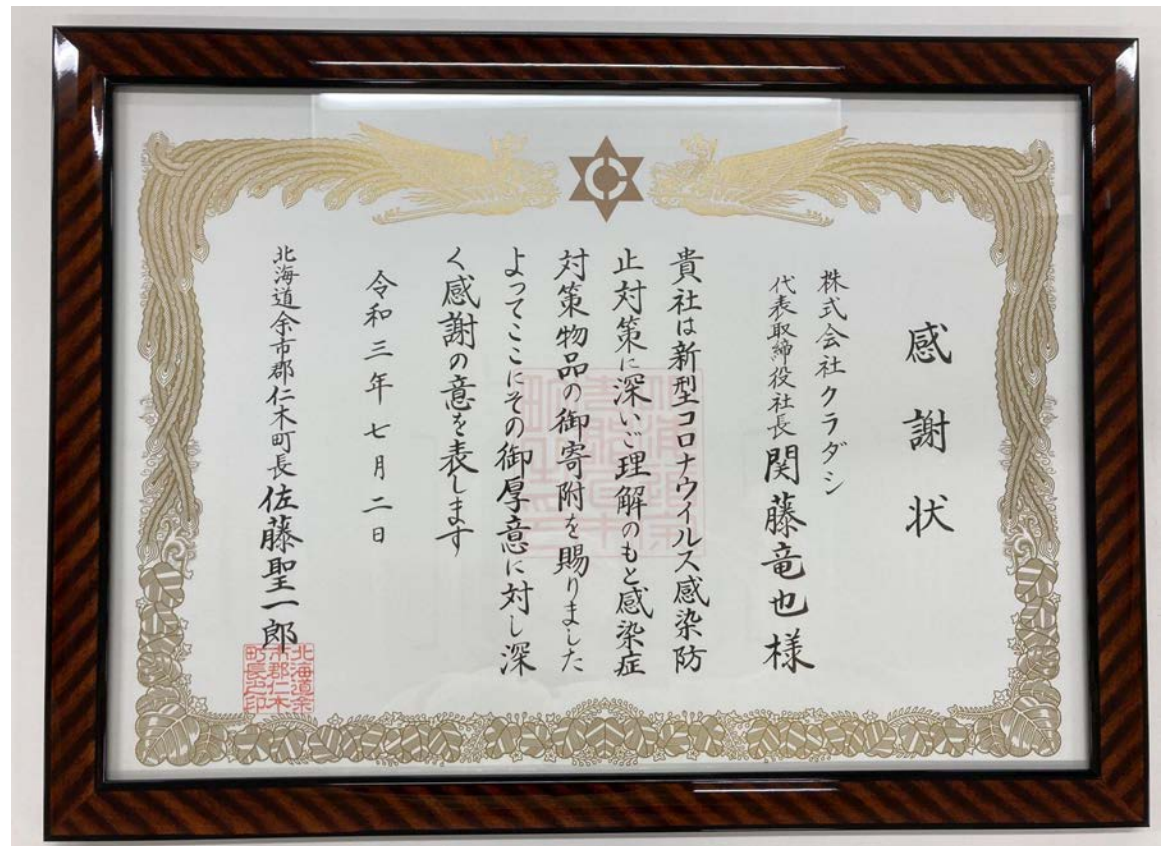 感謝状
株式会社クラダシ
代表取締役社長 関藤竜也様
貴社は新型コロナウイルス感染防
止対策に深いご理解のもと感染症
対策物品の御寄附を賜りました
よってここにその御厚意に対し深
く感謝の意を表します
令和三年七月二日
北海道余市郡仁木町長 佐藤聖一郎
北海道余
市郡仁木
町長之印